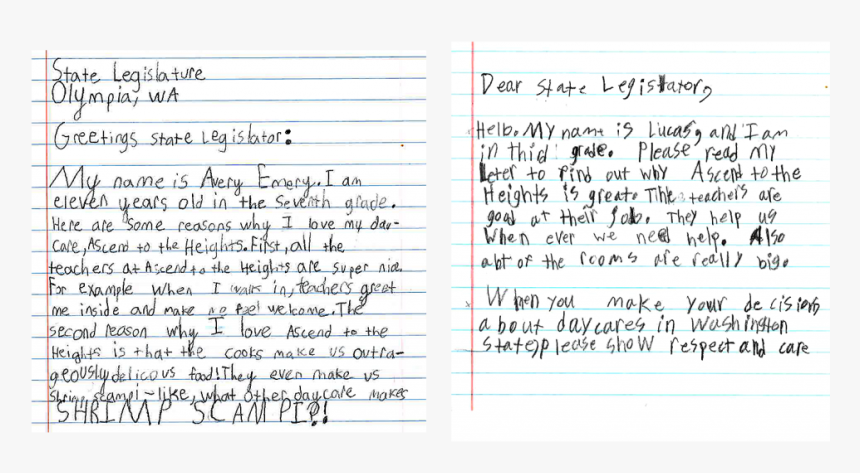 State Legislature
Olympia, WA
Greetings state legislator:
My name is Avery Emery. I am
eleven years old in the Seventh grade.
Here are some reasons why I love my day-
care, Ascend to the Heights. First, all the
teachers at Ascend to the Heights are super nice.
For example when I walk in, teachers greet
me inside and make me feel welcome. The
second reason why I love Ascend to the
Heights is that the cooks make us outra-
geously delicous food! They even make us
shrimp scampi-like, what other daycare makes
SHRIMP SCAMPI?!
Dear State Legislator,
Hello. My name is Lucas, and I am
in thid grade. Please read my
leter to find out why Ascend to the
Heights is great. The teachers are
good at their job. They help us
when ever we need help. Also
alot of the rooms are really big.
When you make your decisions
about daycares in Washington
State, please show respect and care